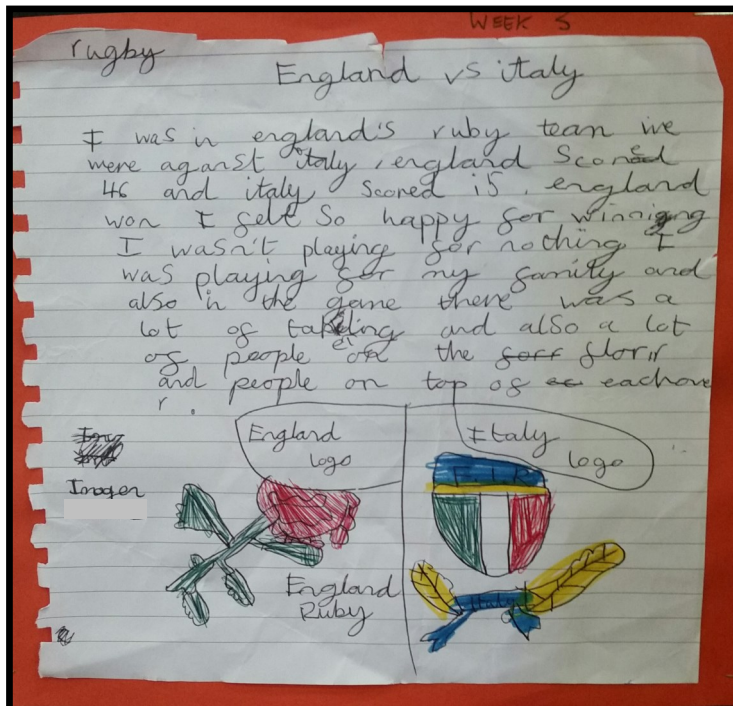 WEEK 5
rugby
England vs italy
I was in england's ruby team we
were aganst italy, england Scored
46 and italy Scored 15, england
won I felt So happy for winnigng
I wasn't playing for nothing I
was playing for my family and
also in the game there was a
lot of takeling and also a lot
of people on the florr
and people on top of eachove
r.
England
logo
Italy
logo
Imogen
England
Ruby
Italy